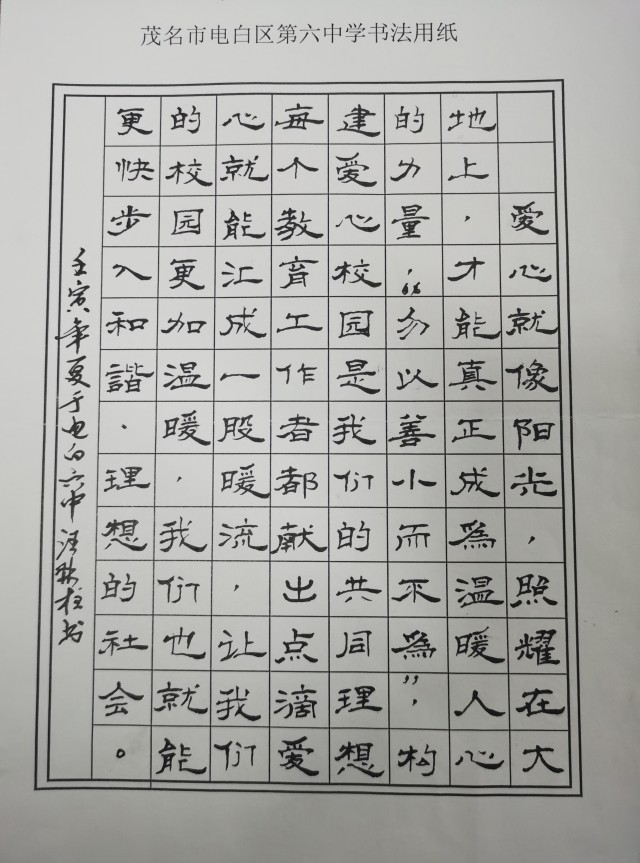 茂名市电白区第六中学书法用纸
爱心就像阳光，照耀在大
地上，才能真正成為温暖人心
的力量，“勿以善小而不為”，构
建爱心校园是我们的共同理想
每个教育工作者都献出点滴爱
心就能汇成一股暖流，让我们
的校园更加温暖，我们也就能
更快步入和諧、理想的社会。
壬寅年夏于电白六中 汪柱书